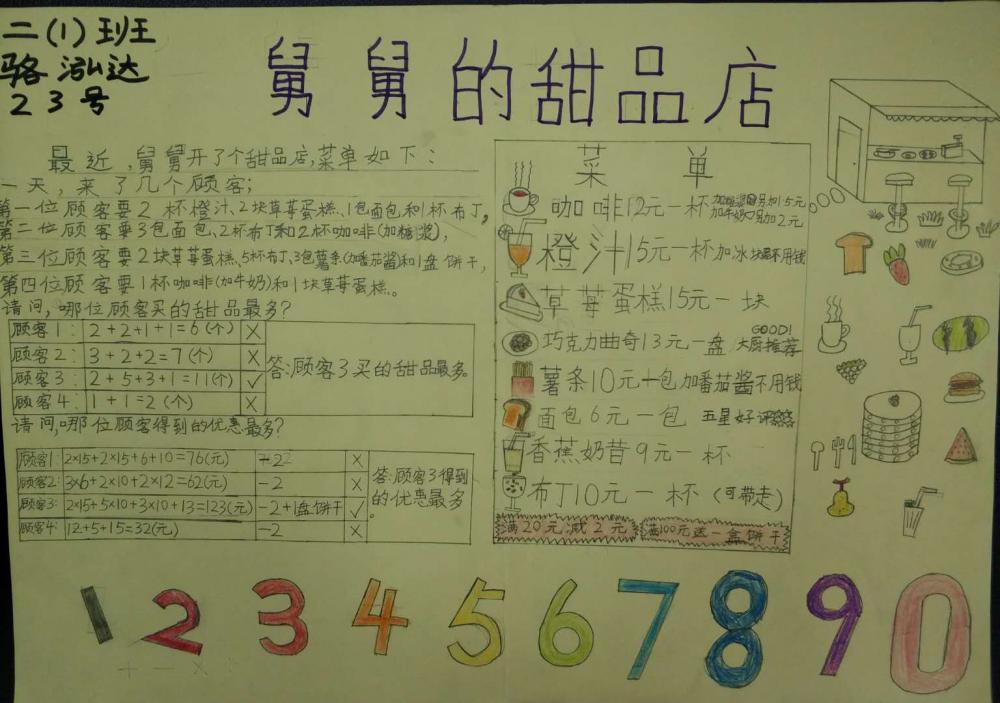 二(1)班
骆泓达
23号
舅舅的甜品店
最近,舅舅开了个甜品店,菜单如下:
一天,来了几个顾客;
第一位顾客要2杯橙汁、2块草莓蛋糕、1包面包和1杯布丁,
第二位顾客要3包面包、2杯布丁和2杯咖啡(加糖浆),
第三位顾客要2块草莓蛋糕、5杯布丁、3包薯条(加番茄酱)和1盘饼干,
第四位顾客要1杯咖啡(加牛奶)和1块草莓蛋糕。
请问,哪位顾客买的甜品最多?
顾客1: 2+2+1+1=6(个) ×
顾客2: 3+2+2=7(个) ×
顾客3: 2+5+3+1=11(个) ✓
顾客4: 1+1=2(个) ×
答:顾客3买的甜品最多。
请问,哪位顾客得到的优惠最多?
顾客1: 2×15+2×15+6+10=76(元) -2 ×
顾客2: 3×6+2×10+2×12=62(元) -2 ×
顾客3: 2×15+5×10+3×10+13=123(元) -2+1盘饼干 ✓
顾客4: 12+5+15=32(元) -2 ×
答:顾客3得到
的优惠最多
。
菜单
咖啡12元一杯
加牛奶另加2元
橙汁15元一杯加冰块不用钱
草莓蛋糕15元一块
巧克力曲奇13元一盘 GOOD! 大厨推荐
薯条10元一包加番茄酱不用钱
面包6元一包 五星好评
香蕉奶昔9元一杯
布丁10元一杯(可带走)
满20元减2元
满100元送一盒饼干
1 2 3 4 5 6 7 8 9 0
+ - × ÷